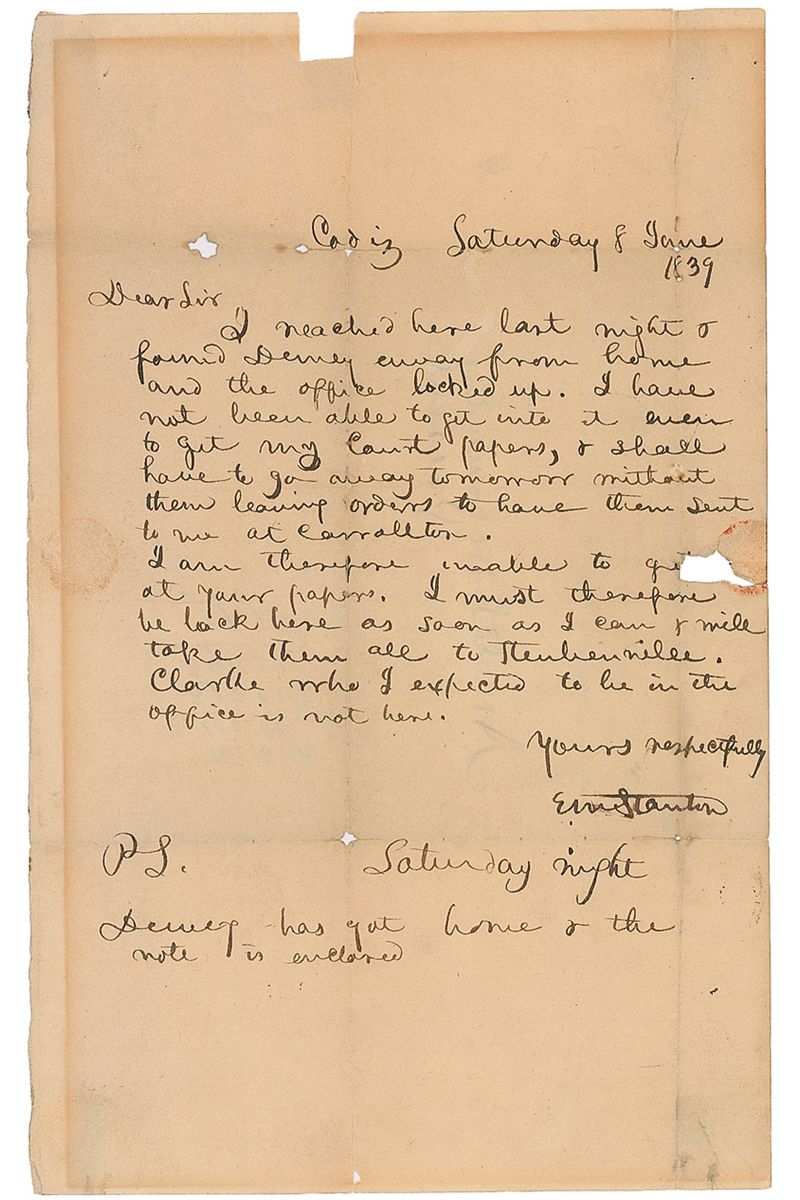 Cadiz Saturday 8 June
1839
Dear Sir
I reached here last night &
found Dewey away from home
and the office locked up. I have
not been able to get into it even
to get my Court papers, & shall
have to go away tomorrow without
them leaving orders to have them sent
to me at Carrollton.
I am therefore unable to get
at your papers. I must therefore
be back here as soon as I can & will
take them all to Steubenville.
Clarke who I expected to be in the
office is not here.
Yours respectfully
EM Stanton
PS. Saturday night
Dewey has got home & the
note is enclosed